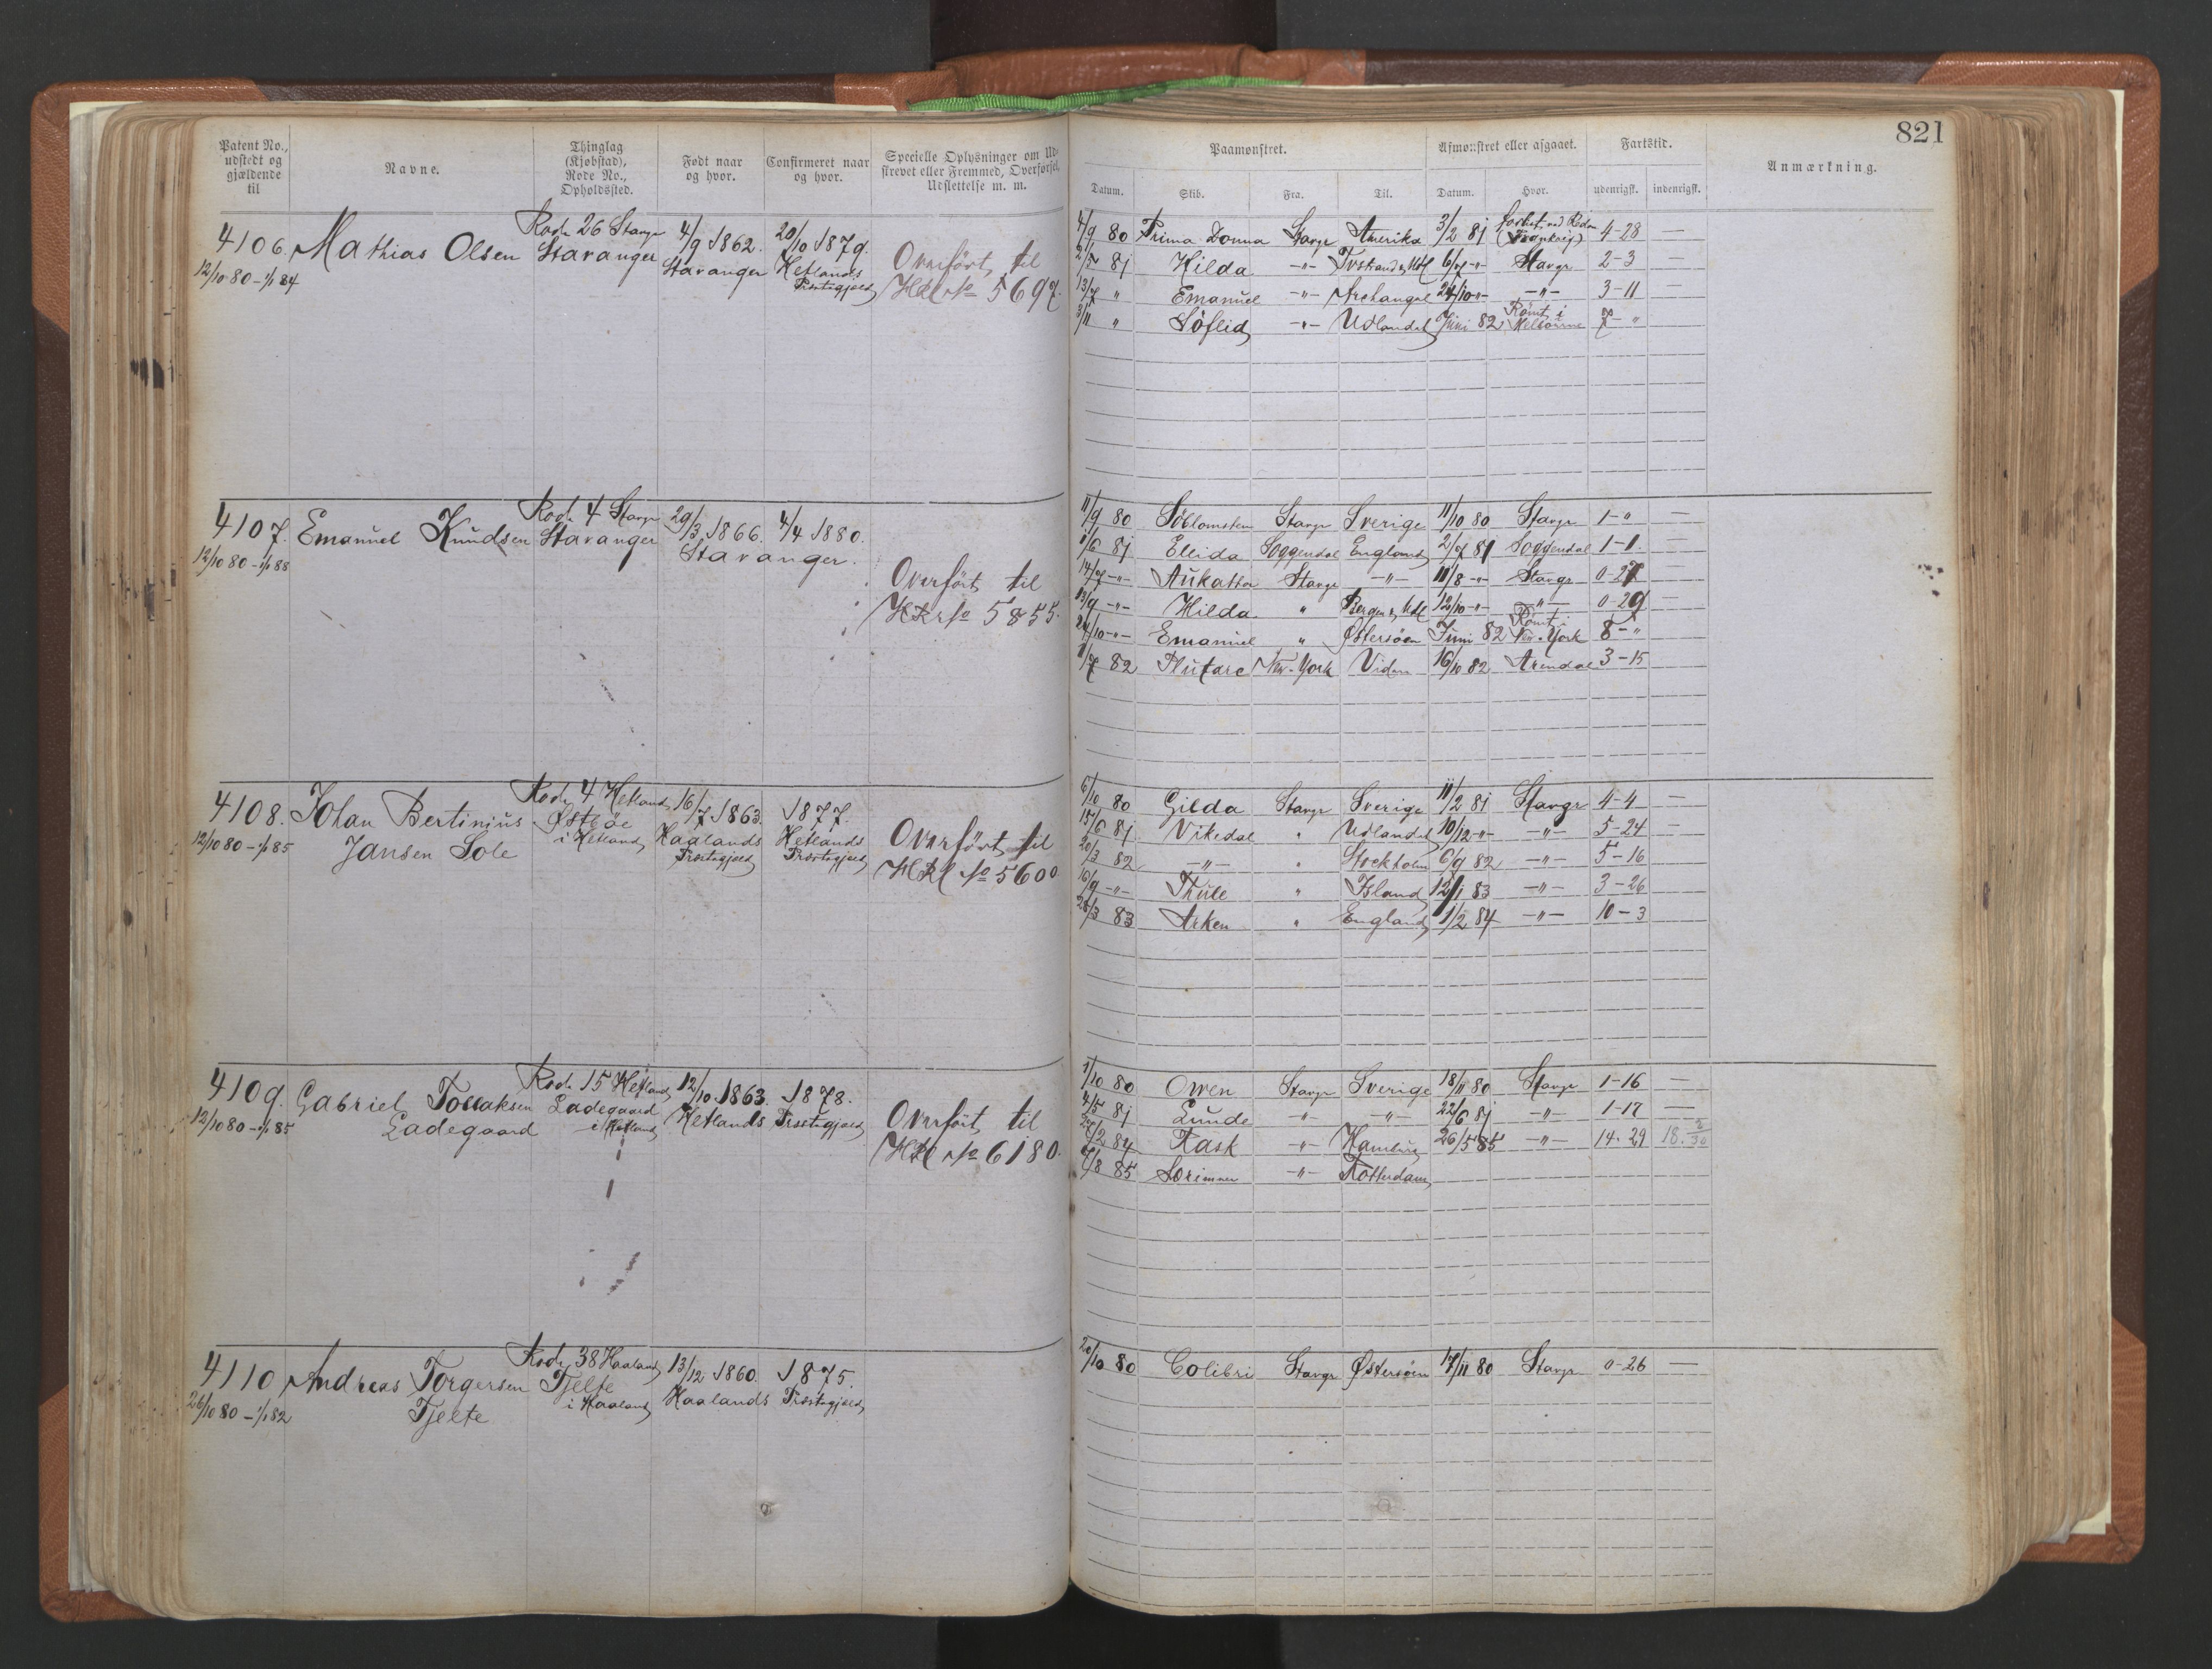 821
Patent No., udstedt og gjældende til
Navne.
Thinglag (Kjøbstad), Rode No., Opholdssted.
Født naar og hvor.
Confirmeret naar og hvor.
Specielle Oplysninger om Udskrevet eller Fremmed, Overførsel, Udslettelse m. m.
Paamønstret.
Afmønstret eller afgaaet.
Fartstid.
Anmærkning.
Datum. Skib. Fra. Til. Datum. Hvor. udenrigsk. indenrigsk.
4106. Mathias Olsen
12/10 80 – 1/1 84
Rode 26 Stavgr
Stavanger
4/9 1862.
Stavanger
20/10 1879.
Hetlands
Præstegjæld
Overført til
HRl No 5697
4/9 80 Prima Donna Stavgr Amerika 3/2 81 4-28 —
2/5 81 Hilda -"- 6/7 -"- Stavgr 2-3 —
13/7 " Emanuel -"- Archangel 24/10 -"- -"- 3-11 —
3/11 " Söflid -"- Udlandet Juni 82 Rømt i Melbourne 7-" 
4107. Emanuel Knudsen
12/10 80 – 1/1 88
Rode 4 Stavgr
Stavanger
29/3 1866.
4/4 1880.
Stavanger.
Overført til
HRl No 5855.
11/9 80 Söblomsten Stavgr Sverige 11/10 80 Stavgr 1-" —
1/6 81 Ellida Soggendal England 2/7 81 Soggendal 1-1. —
14/7 -"- Aukatha Stavgr -"- 11/8 -"- Stavgr 0-27 —
13/9 -"- Hilda " Bergen & Udl 12/10 -"- -"- 0-29 —
24/10 -"- Emanuel " Østersøen Juni 82 Rømt i New-York 8-"
1/7 82 Plutarc New-York Vidne 16/10 82 Arendal 3-15
4108. Johan Bertinius
Jansen Sole
12/10 80 – 1/1 85
Rode 4 Hetland
Østbøe
i Hetland
16/7 1863.
Haalands
Præstegjæld
1877.
Hetlands
Præstegjæld
Overført til
HRl No 5600
6/10 80 Gilda Stavgr Sverige 11/2 81 Stavgr 4-4 —
15/6 81 Vikedal " Udlandet 10/12 -"- -"- 5-24 —
20/3 82 -"- " Stockholm 6/9 82 -"- 5-16
16/9 -"- Thule " Island 12/1 83 -"- 3-26
28/3 83 Arken " England 1/2 84 -"- 10-3
4109. Gabriel Tollaksen
Ladegaard
12/10 80 – 1/1 85
Rode 15 Hetland
Ladegaard
i Hetland
12/10 1863.
1878.
Hetlands Præstegjæld
Overført til
HRl No 6180.
1/10 80 Owen Stavgr Sverige 18/11 80 Stavgr 1-16 —
4/5 81 Lunde -"- -"- 22/6 81 -"- 1-17 —
27/2 84 Rask -"- Hamburg 26/5 85 -"- 14.29 18. 2/30
7/8 85 Særimner -"- Rotterdam
4110 Andreas Torgersen
Tjelte
26/10 80 – 1/1 82
Rode 38 Haaland
Tjelte
i Haaland
13/12 1860.
1875.
Haalands Præstegjæld
20/10 80 Colibri Stavgr Østersøen 17/11 80 Stavgr 0-26 —